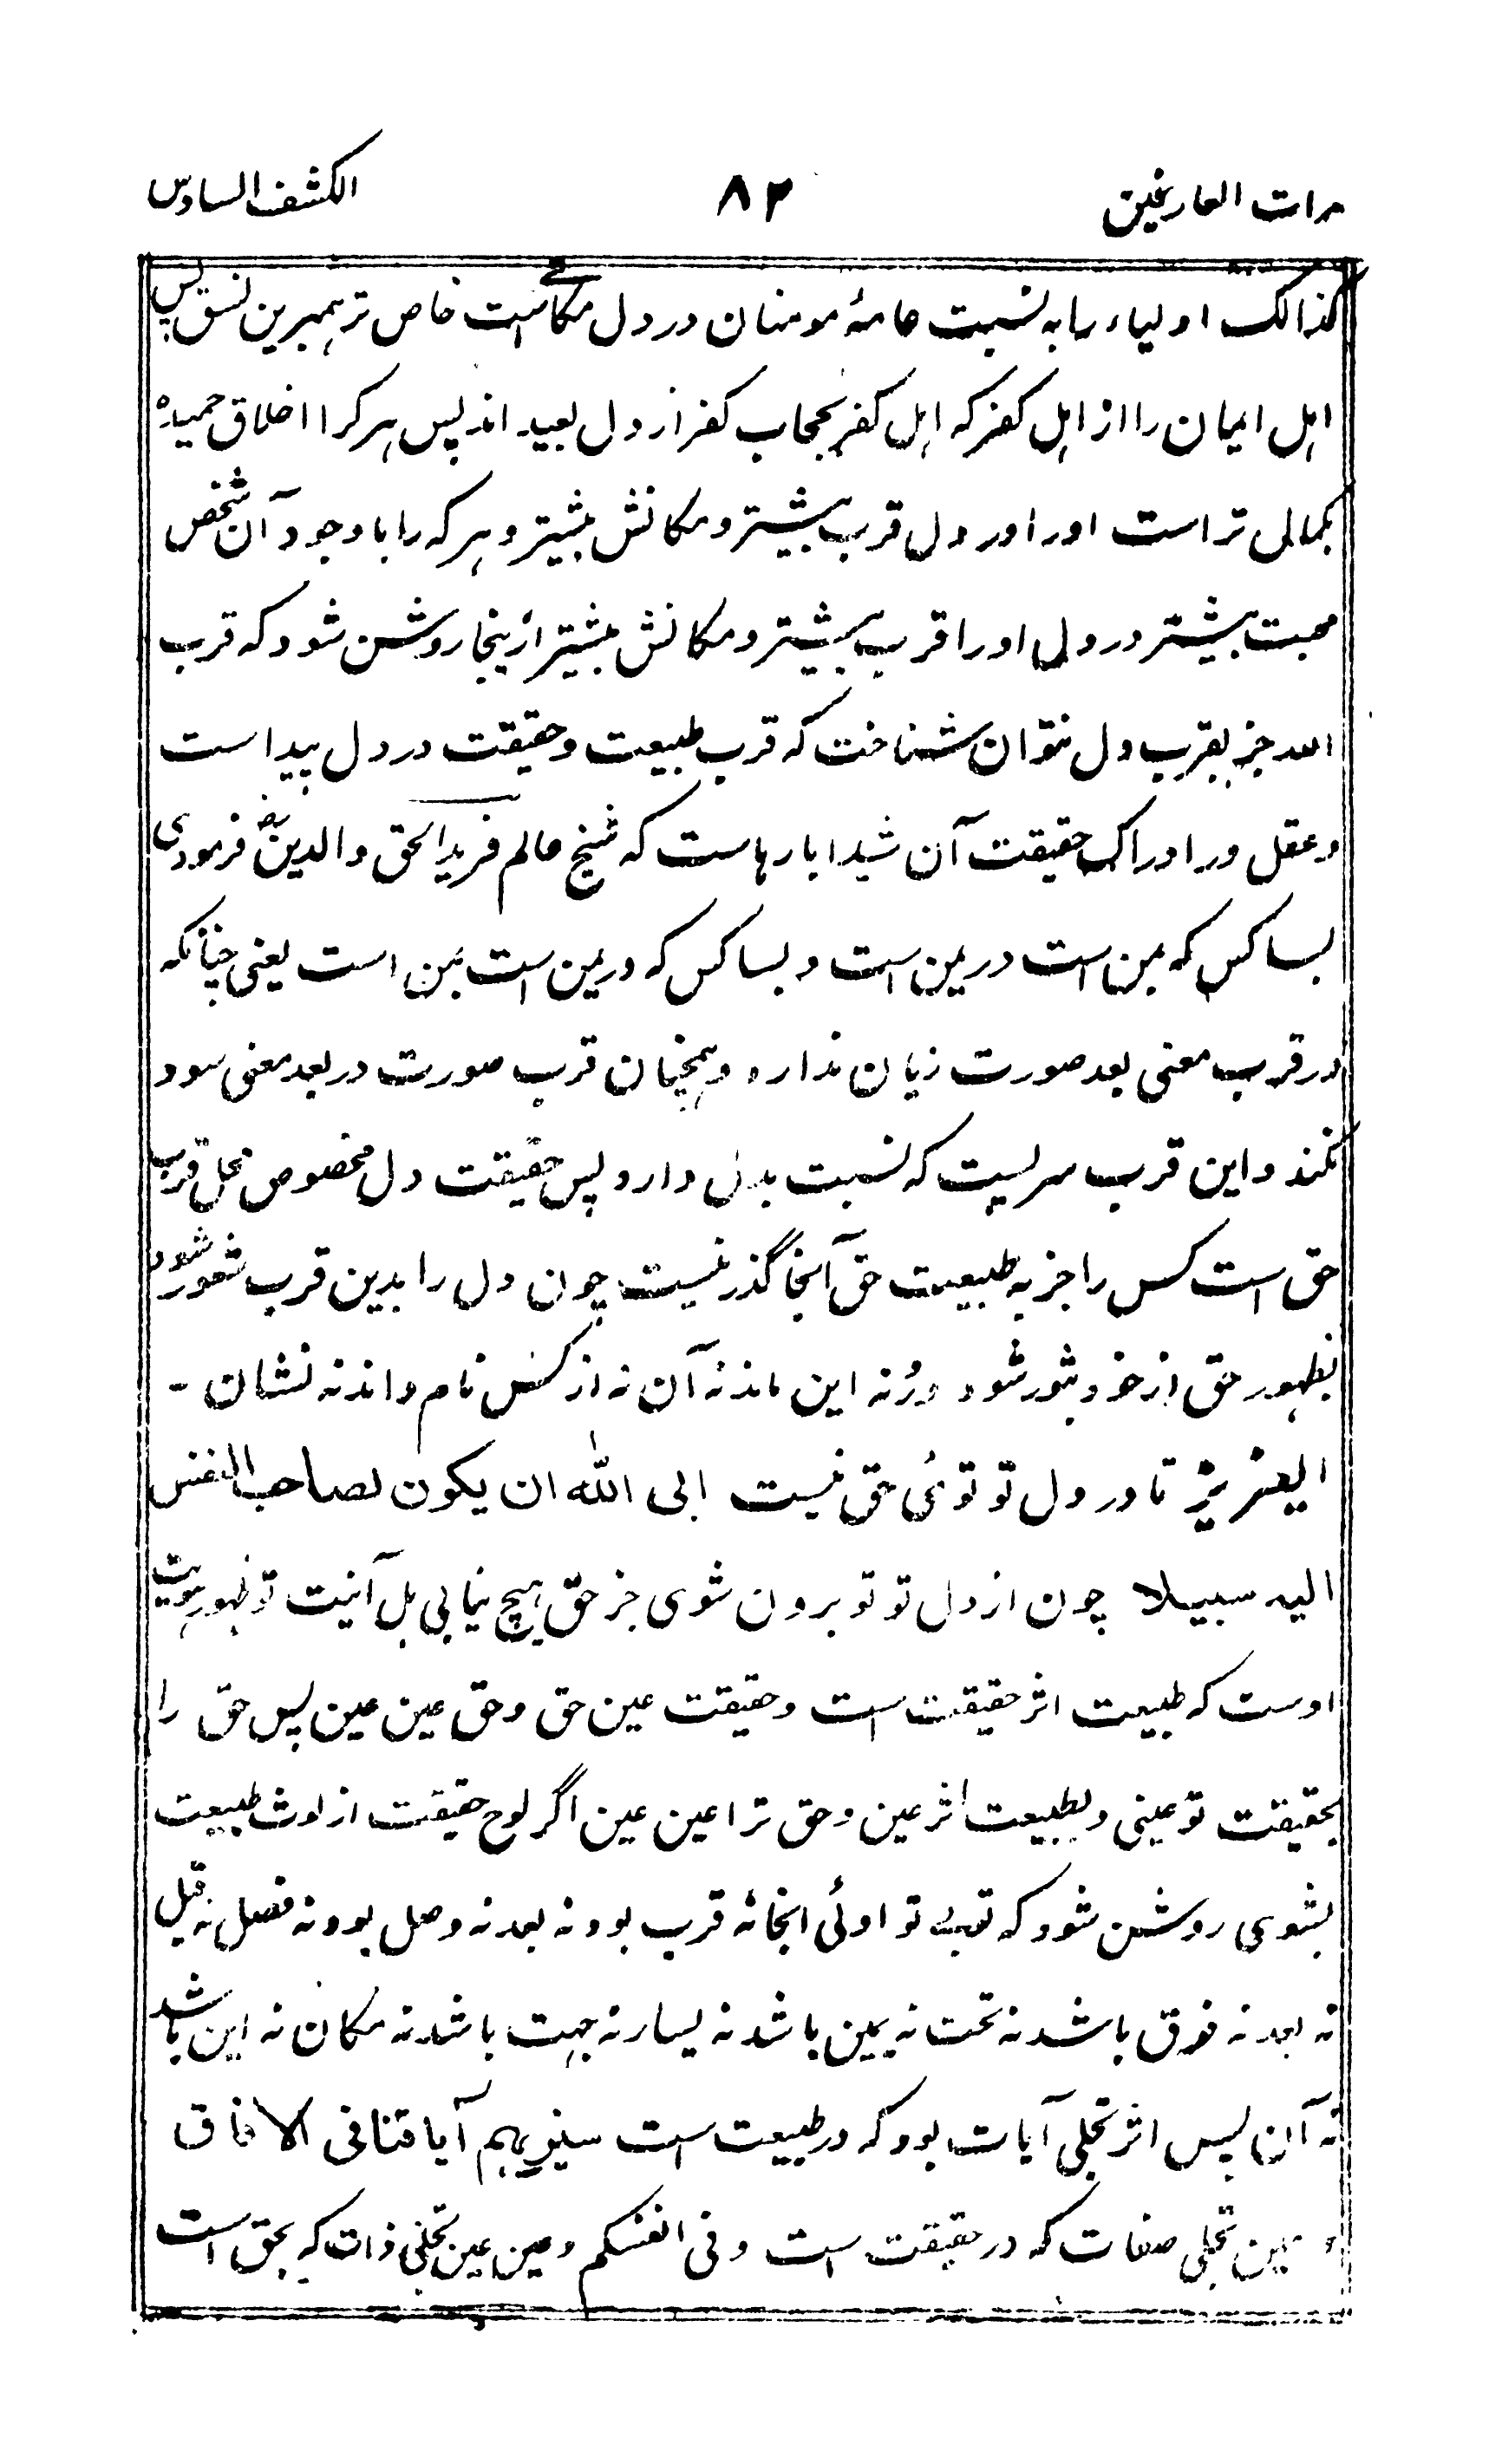 مرات العارفین ۸۲ الکشف السادس
کذالک اولیاء را به نسبت عامهٔ مومنان در دل مکانیست خاص تر همبرین نسق پس
اهل ایمان را از اهل کفر که اهل کفر بحجاب کفر از دل بعید اند پس هر کرا اخلاق حمیده
بکمالی تر است او را در دل قرب بیشتر و مکانش بیشتر و هر که را با وجود آن شخص
محبت بیشتر در دل او را قرب بیشتر و مکانش بیشتر ازینجا روشن شود که قرب
الله جز بقرب دل نتوان شناخت که قرب طبیعت و حقیقت در دل پیدا ست
و عقل در ادراک حقیقت آن شیدا بارهاست که شیخ عالم فرید الحق والدین رض فرمودی
بسا کس که بمن است در یمن است و بسا کس که در یمن است بمن است یعنی چنانکه
در قرب معنی بعد صورت زیان ندارد و همچنان قرب صورت در بعد معنی سود
نکند و این قرب سریست که نسبت بدل دارد پس حقیقت دل مخصوص محل قرب
حق است کس را جز به طبیعت حق آنجا گذر نیست چون دل را بدین قرب شعور شود
بظهور حق از خود بشور شود ورنه این ماند نه آن نه از کس نام داند نه نشان -
العزیز تا در دل تو توئی حق نیست ابی الله ان یکون لصاحب النفس
الیه سبیلا چون از دل تو تو برون شوی جز حق هیچ نیابی بل آنیت تو ظهور هویت
اوست که طبیعت اثر حقیقت است و حقیقت عین حق و حق عین عین پس حق را
بحقیقت تو عینی و بطبیعت اثر عین و حق ترا عین عین اگر لوح حقیقت از لوث طبیعت
بشوی روشن شود که تو بی تو اوئی انجا نه قرب بود نه بعد نه وصل بود نه فصل نه قبل
نه بعد نه فوق باشد نه تحت نه یمین باشد نه یسار نه جهت باشد نه مکان نه این باشد
نه آن پس اثر تجلی آیات بود که در طبیعت است سنریهم آیاتنا فی الافاق
و عین تجلی صفات که در حقیقت است و فی انفسکم و عین عین تجلی ذات که بحق است